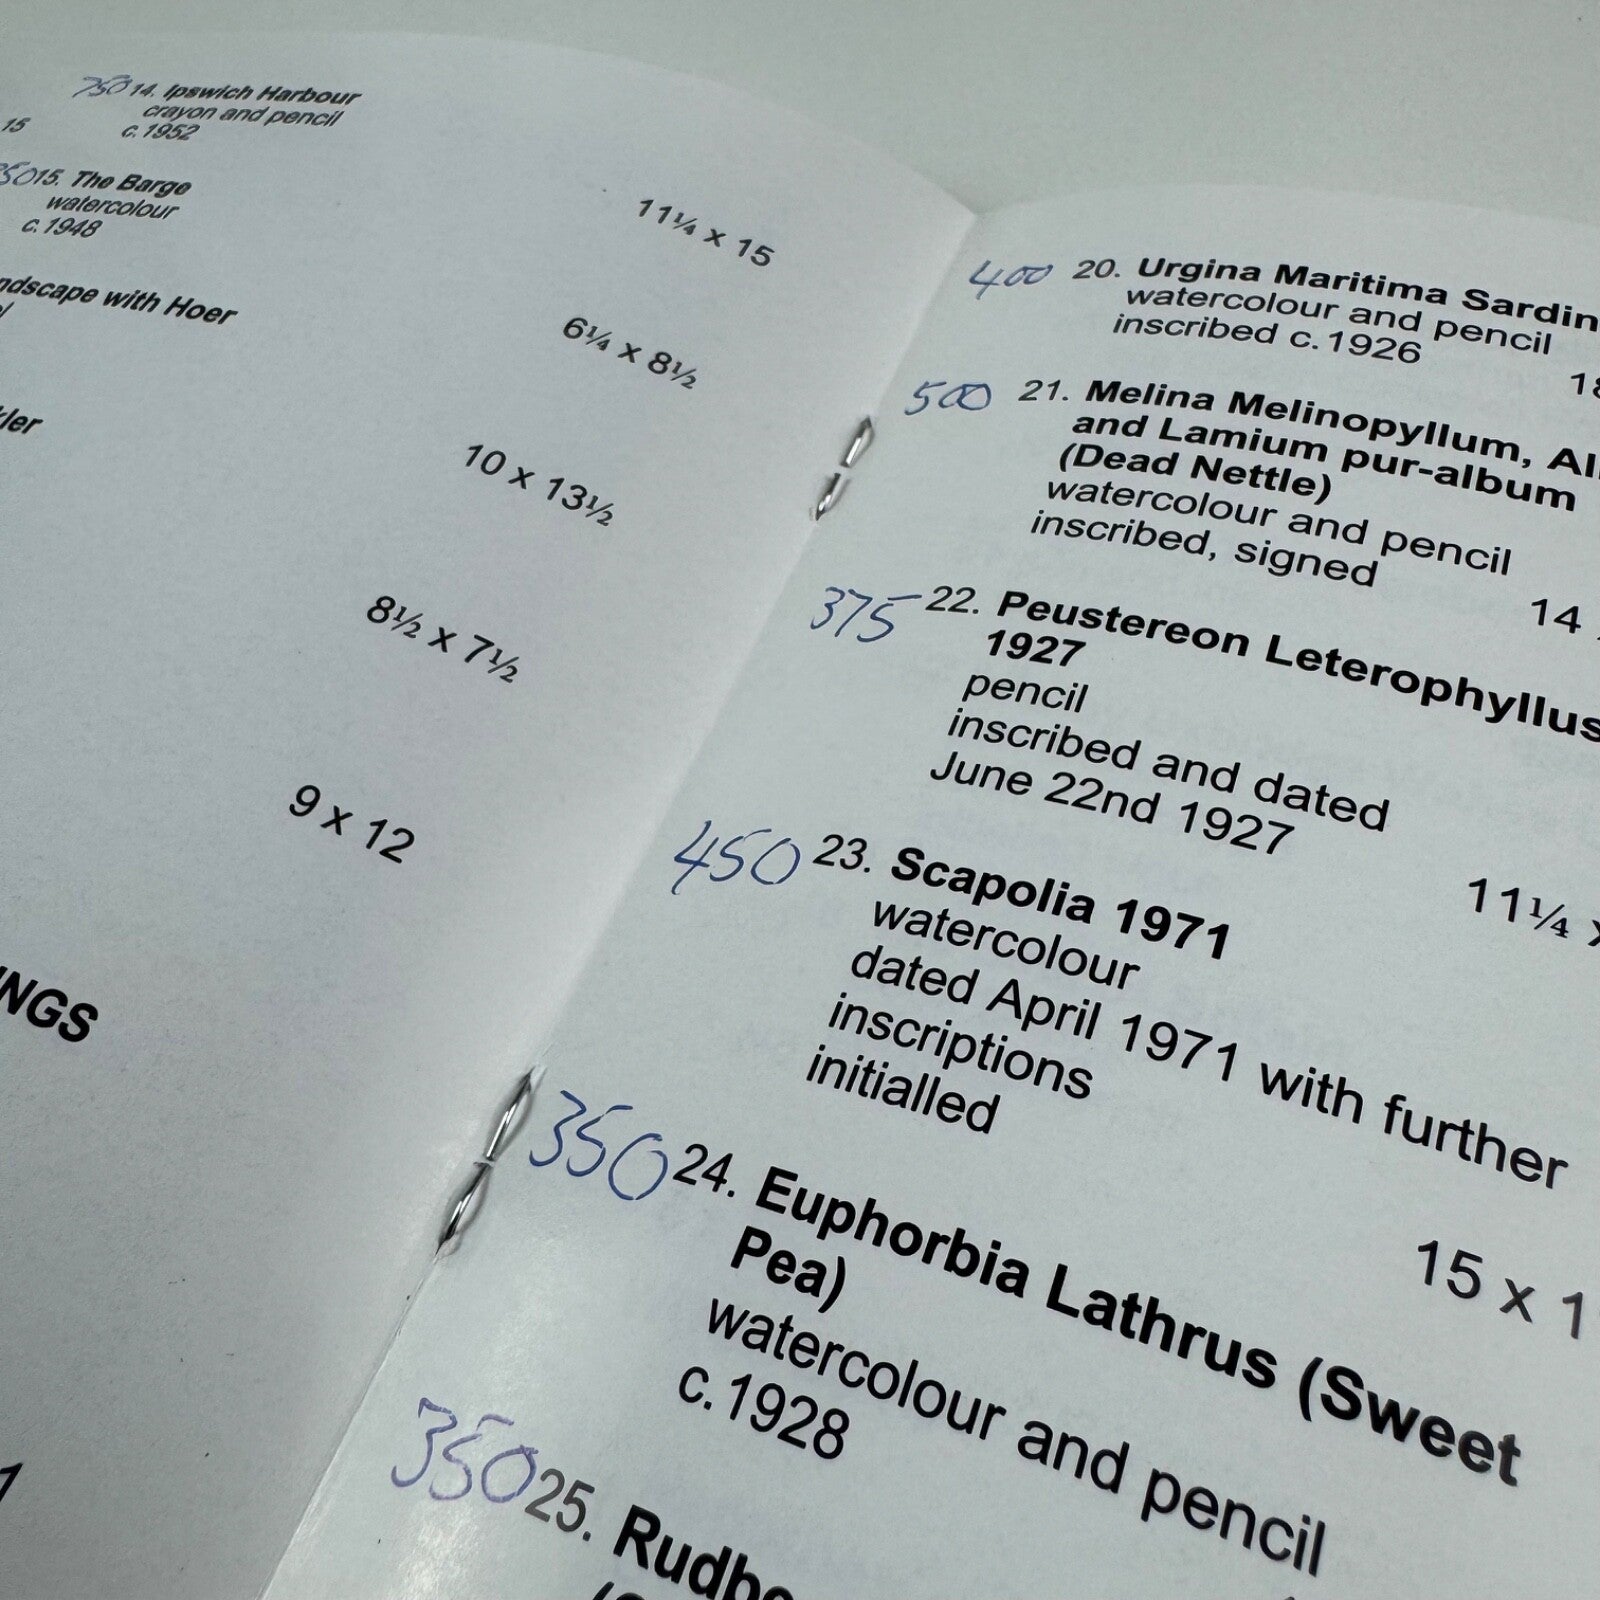 750 14. Ipswich Harbour
crayon and pencil
c.1952
15
15. The Barge
watercolour
c.1948
11¼ x 15
with Hoer
6¼ x 8½
10 x 13½
8½ x 7½
9 x 12
400 20. Urgina Maritima
watercolour and pencil
inscribed c.1926
500 21. Melina Melinopyllum,
and Lamium pur-album
(Dead Nettle)
watercolour and pencil
inscribed, signed
14
375 22. Peustereon Leterophyllus
1927
pencil
inscribed and dated
June 22nd 1927
11¼ x
450 23. Scapolia 1971
watercolour
dated April 1971 with further
inscriptions
initialled
15 x 1
350 24. Euphorbia Lathrus (Sweet
Pea)
watercolour and pencil
c.1928
350 25.